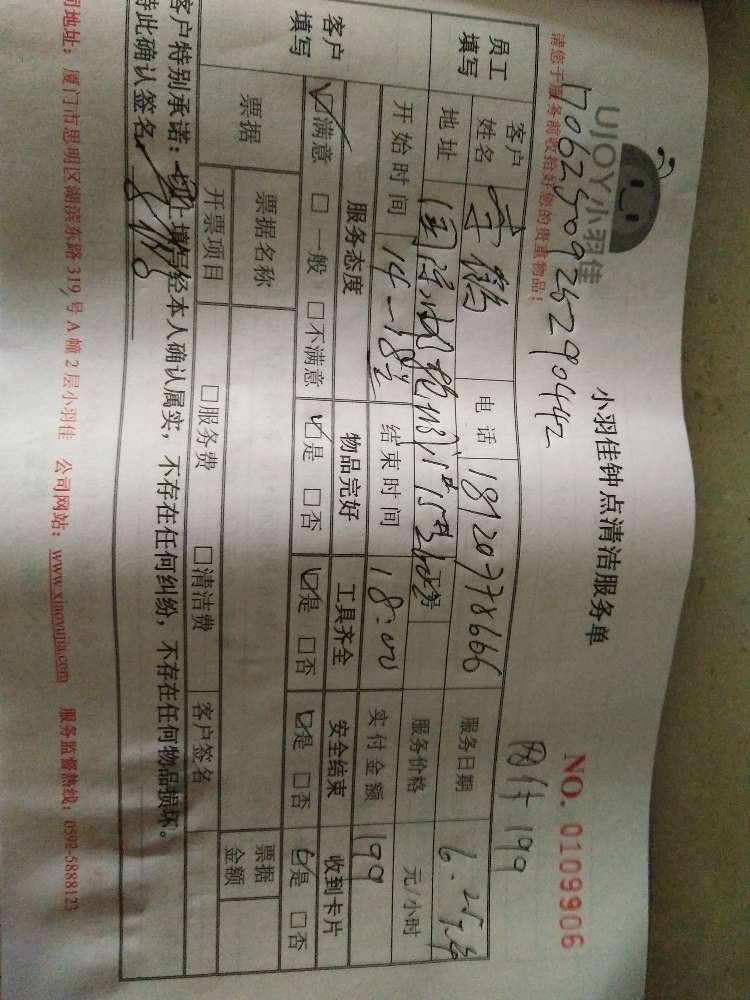 UJOY小羽佳
小羽佳钟点清洁服务单
NO. 0109906
请您于服务前收拾好您的贵重物品！
199
员工填写
客户姓名
电话 18120778666
服务日期 6.25
地址
服务价格 元/小时
开始时间 14-18
结束时间 18:00
实付金额 199
客户填写
服务态度 物品完好 工具齐全 安全结束 收到卡片
☑满意 □一般 □不满意 ☑是 □否 ☑是 □否 ☑是 □否 ☑是 □否
票据
票据名称
票据金额
开票项目 □服务费 □清洁费 客户签名
客户特别承诺：以上填写经本人确认属实，不存在任何纠纷，不存在任何物品损坏。
特此确认签名
司地址：厦门市思明区湖滨东路 319 号 A 幢 2 层小羽佳 公司网站：www.xiaoyujia.com 服务监督热线：0592-5888123